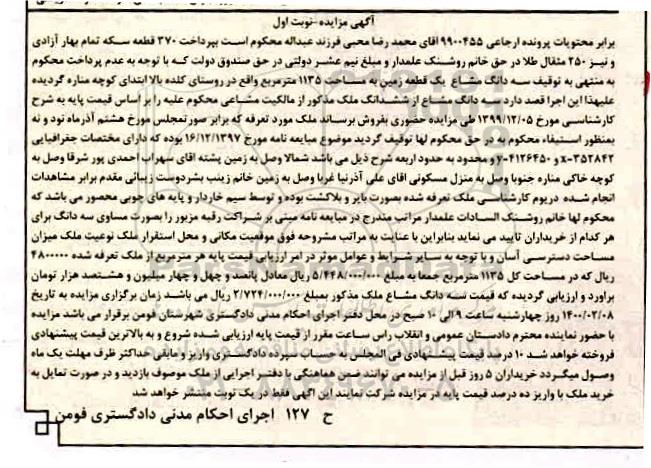 آگهی مزایده-نوبت اول
برابر محتویات پرونده ارجاعی ۹۹۰۰۴۵۵ آقای محمد رضا محبی فرزند عبداله محکوم است بپرداخت ۳۷۰ قطعه سکه تمام بهار آزادی
و نیز ۲۵۰ مثقال طلا در حق خانم روشنک علمدار و مبلغ نیم عشر دولتی در حق صندوق دولت که با توجه به عدم پرداخت محکوم
به منتهی به توقیف سه دانگ مشاع یک قطعه زمین به مساحت ۱۱۳۵ مترمربع واقع در روستای کلده بالا ابتدای کوچه مناره گردیده
علیهذا این اجرا قصد دارد سه دانگ مشاع از ششدانگ ملک مذکور از مالکیت مشاعی محکوم علیه را بر اساس قیمت پایه به شرح
کارشناسی مورخ ۱۳۹۹/۱۲/۰۵ طی مزایده حضوری بفروش برساند ملک مورد تعرفه که برابر صورتمجلس مورخ هشتم آذرماه نود و نه
بمنظور استیفاء محکوم به در حق محکوم لها توقیف گردید موضوع مبایعه نامه مورخ ۱۶/۱۲/۱۳۹۷ بوده که دارای مختصات جغرافیایی
x-۳۵۲۸۴۲ و y-۴۱۲۶۴۵۰ و محدود به حدود اربعه شرح ذیل می باشد شمالا وصل به زمین پشته اقای سهراب احمدی پور شرقا وصل به
کوچه خاکی مناره جنوبا وصل به منزل مسکونی اقای علی آذرنیا غربا وصل به زمین خانم زینب بشردوست زیبائی مقدم برابر مشاهدات
انجام شده دریوم کارشناسی ملک تعرفه شده بصورت بایر و بلاکشت بوده و توسط سیم خاردار و پایه های چوبی محصور می باشد که
محکوم لها خانم روشنک السادات علمدار مراتب مندرج در مبایعه نامه مبنی بر شراکت رقبه مزبور را بصورت مساوی سه دانگ برای
هر کدام از خریداران تایید می نماید بنابراین با عنایت به مراتب مشروحه فوق موقعیت مکانی و محل استقرار ملک نوعیت ملک میزان
مساحت دسترسی آسان و با توجه به سایر شرایط و عوامل موثر در امر ارزیابی قیمت پایه هر مترمربع از ملک تعرفه شده ۴۸۰۰۰۰۰
ریال که در مساحت کل ۱۱۳۵ مترمربع جمعا به مبلغ ۵/۴۴۸/۰۰۰/۰۰۰ ریال معادل پانصد و چهل و چهار میلیون و هشتصد هزار تومان
براورد و ارزیابی گردیده که قیمت سه دانگ مشاع ملک مذکور بمبلغ ۲/۷۲۴/۰۰۰/۰۰۰ ریال می باشد زمان برگزاری مزایده به تاریخ
۱۴۰۰/۰۲/۰۸ روز چهارشنبه ساعت ۹ الی ۱۰ صبح در محل دفتر اجرای احکام مدنی دادگستری شهرستان فومن برقرار می باشد مزایده
با حضور نماینده محترم دادستان عمومی و انقلاب راس ساعت مقرر از قیمت پایه ارزیابی شده شروع و به بالاترین قیمت پیشنهادی
فروخته خواهد شد ۱۰ درصد قیمت پیشنهادی فی المجلس به حساب سپرده دادگستری واریز و مابقی حداکثر ظرف مهلت یک ماه
وصول میگردد خریداران ۵ روز قبل از مزایده می توانند ضمن هماهنگی با دفتر اجرایی از ملک موصوف بازدید و در صورت تمایل به
خرید ملک با واریز ده درصد قیمت پایه در مزایده شرکت نمایند این آگهی فقط در یک نوبت منتشر خواهد شد
ح ۱۲۷ اجرای احکام مدنی دادگستری فومن